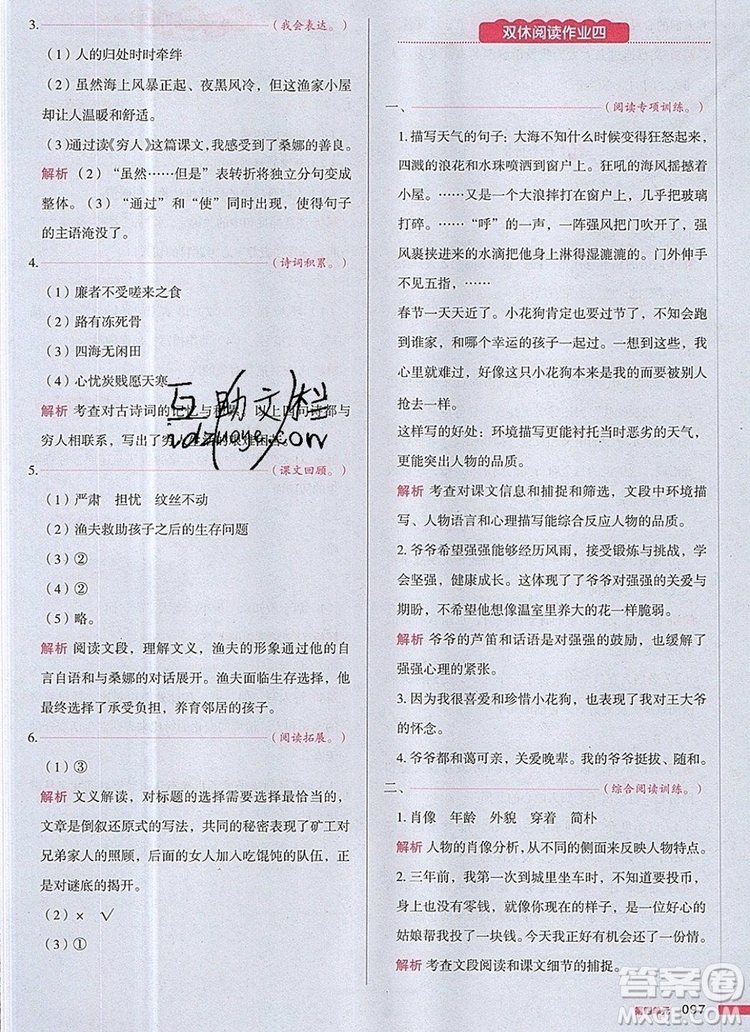 3.（我会表达。）
（1）人的归处时时牵绊
（2）虽然海上风暴正起、夜黑风冷，但这渔家小屋
却让人温暖和舒适。
（3）通过读《穷人》这篇课文，我感受到了桑娜的善良。
解析 （2）“虽然……但是”表转折将独立分句变成
整体。（3）“通过”和“使”同时出现，使得句子
的主语淹没了。
4.（诗词积累。）
（1）廉者不受嗟来之食
（2）路有冻死骨
（3）四海无闲田
（4）心忧炭贱愿天寒
解析 考查对古诗词的记忆与积累，以上四句诗都与
穷人相联系，写出了穷人生活的艰难困苦。
5.（课文回顾。）
（1）严肃 担忧 纹丝不动
（2）渔夫救助孩子之后的生存问题
（3）②
（4）②
（5）略。
解析 阅读文段，理解文义，渔夫的形象通过他的自
言自语和与桑娜的对话展开。渔夫面临生存危机，选
择了承受负担，养育邻居的孩子。
6.（阅读拓展。）
（1）③
解析 文义解读，对标题的选择需要整体把握全文，
文章是倒叙还原式的写法，共同的秘密表现了矿工对
兄弟家人的照顾，最后的女人加入吃馄饨的队伍，正
是对谜底的揭开。
（2）× √
（3）①
双休阅读作业四
一、（阅读专项训练。）
1. 描写天气的句子：大海不知什么时候变得狂怒起来，
四溅的浪花和水珠喷洒到窗户上。狂吼的海风摇撼着
茅草屋顶……一个大浪摔打在窗户上，几乎把玻璃
打碎。……“呼”的一声，一阵强风把门吹开了，强
风裹挟进来的水滴把门口淋得湿漉漉的。门外伸手
不见五指，……
春节一天天近了，小花狗肯定也想有个家吧？跑到
谁家，和家里的孩子一起过年多幸福啊！一想到这里，
我心里就难过，甚至想把这只小花狗从王大爷家里
抢走……
这样写的好处：环境描写更能衬托当时恶劣的天气，
更能突出人物的品质。
解析 考查对课文信息和捕捉和筛选，文段中环境描
写、人物语言和心理描写能综合反应人物的品质。
2. 爷爷希望强强能够经历风雨，接受锻炼与挑战，学
会坚强，健康成长。这体现了爷爷对强强的关爱与
期盼，不希望他像温室里养大的花一样脆弱。
解析 爷爷的芦笛和话语是对强强的鼓励，反衬出强
强心理的紧张。
3. 因为我喜爱和珍惜小花狗，所以体现了我对王大爷
的怀念。
4. 爷爷都和蔼可亲，关爱晚辈。我的爷爷挺拔、随和。
二、（综合阅读训练。）
1. 肖像 年龄 外貌 穿着 简朴
解析 人物的肖像分析，从不同的侧面来反映人物特点。
2. 三年前，我们一家到城里坐车时，本来是投币，
但是没有零钱，就只付了九块。车上的一个好心的
姑娘帮我投了一块钱。今天我正好还了一份情。
解析 考查文段阅读和课文细节的捕捉。
第四单元 097
互助文档
答案圈
MXQE.COM